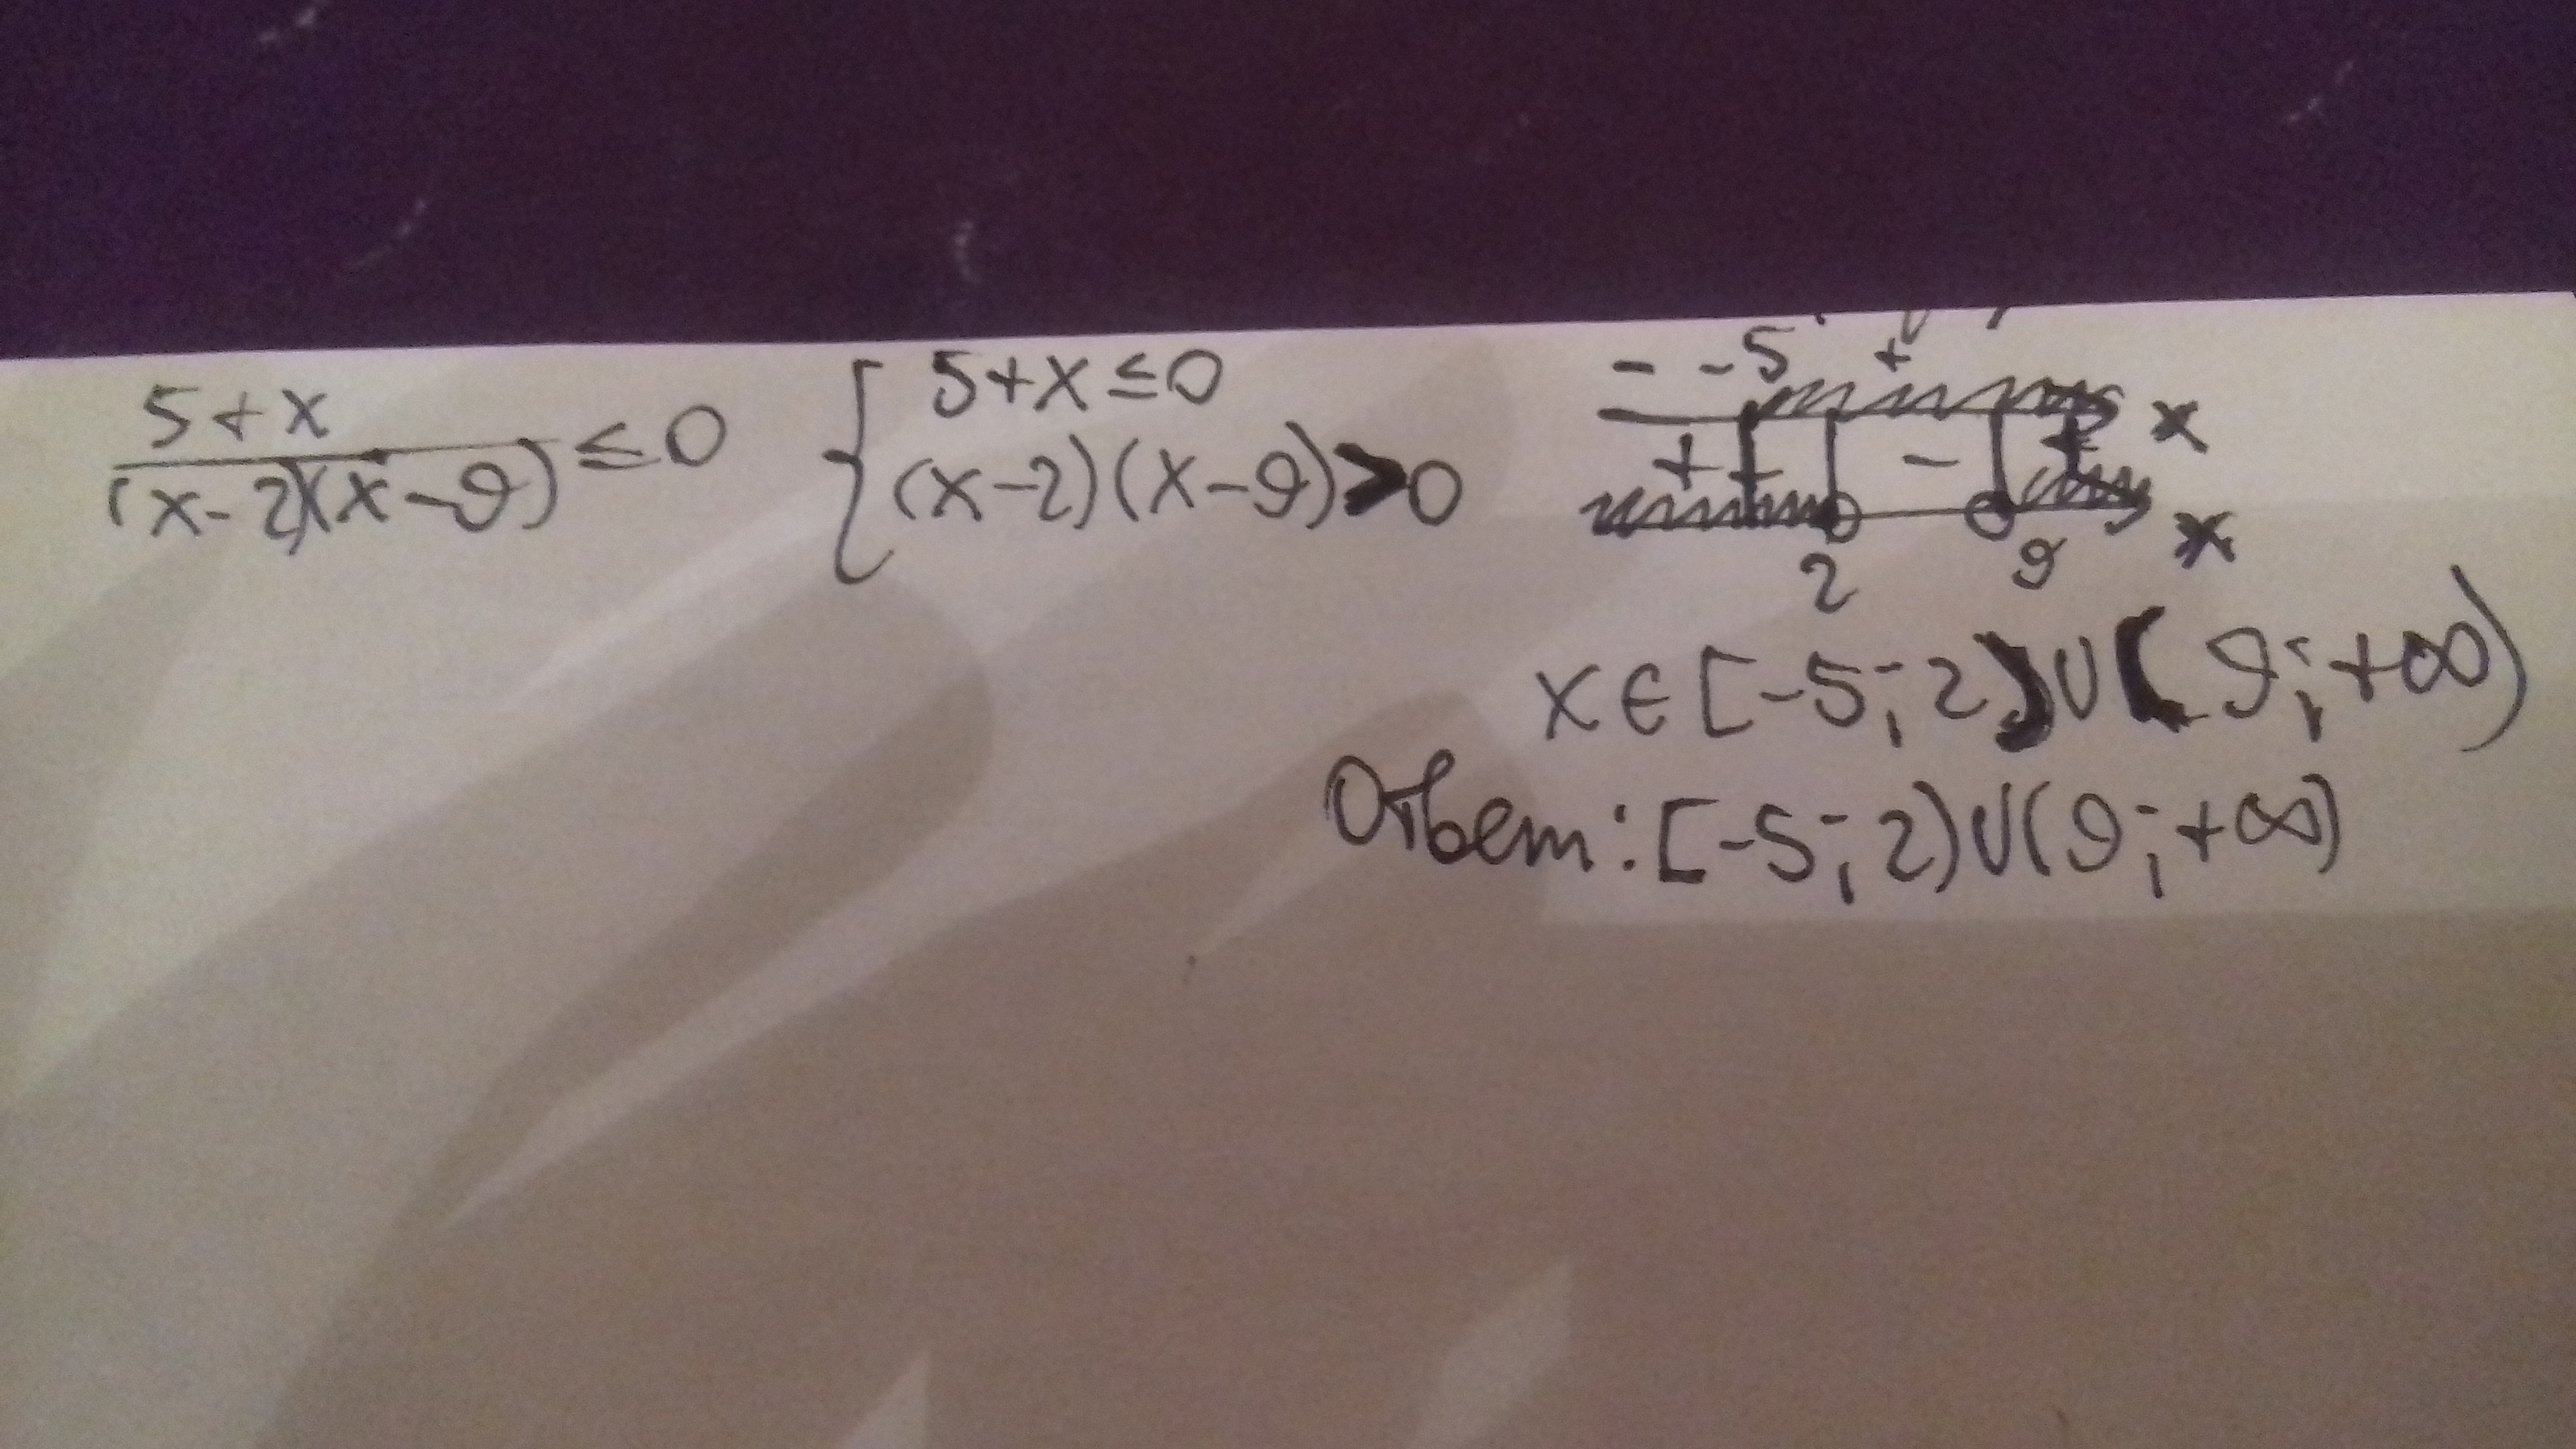 5+x
(x-2)(x-9) ≤0
{ 5+x≤0
(x-2)(x-9)>0
- -5 +
x
+ + - +
x
2 9
x∈[-5;2)∪(9;+∞)
Ответ: [-5;2)∪(9;+∞)